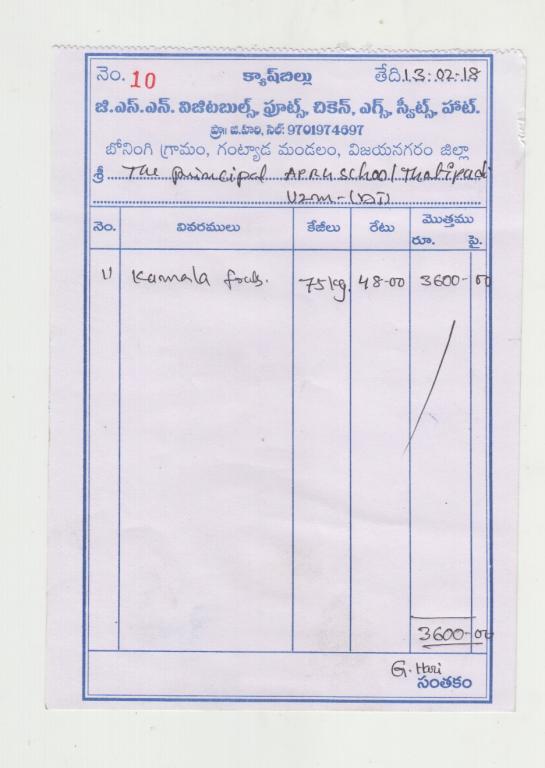 నెం. 10 క్యాష్‌బిల్లు తేది.13-02-18
జి.ఎస్.ఎన్. విజిటబుల్స్, ఫ్రూట్స్, చికెన్, ఎగ్స్, స్వీట్స్, హాట్.
ప్రొ॥ జి.హరి, సెల్: 9701974697
బోనంగి గ్రామం, గంట్యాడ మండలం, విజయనగరం జిల్లా
శ్రీ The principal APRH School Thatipudi
VZM-(DT)
నెం. వివరములు కేజీలు రేటు మొత్తము
రూ. పై.
1) Kamala 75 kg. 48-00 3600-00
3600-00
G. Hari
సంతకం